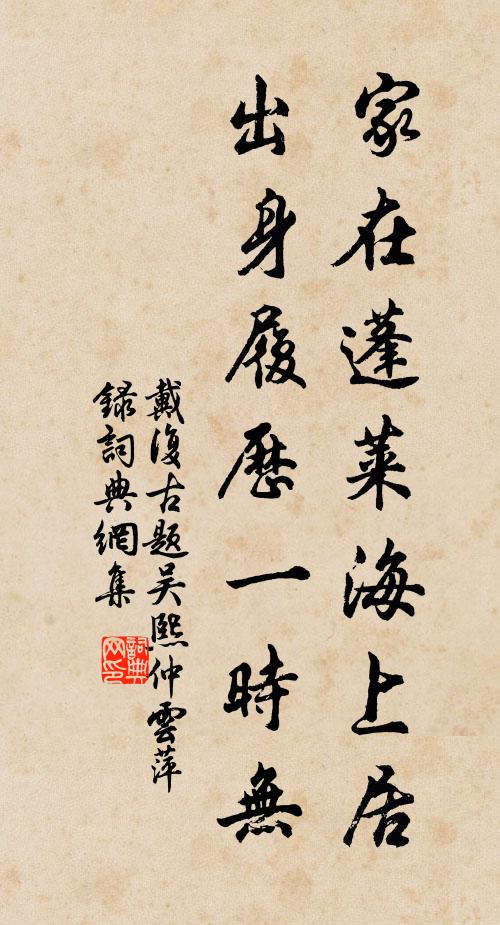 家在蓬萊海上居
出身履歷一時無
戴復古題吴熙仲雲萍
録詞典網集
詞典网印